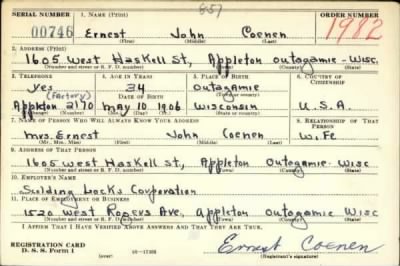 SERIAL NUMBER 1. NAME (Print) 857 ORDER NUMBER
00746 Ernest John Coenen 1982
(First) (Middle) (Last)
2. ADDRESS (Print)
1605 West Haskell St, Appleton Outagamie - Wisc.
(Number and street or R. F. D. number) (Town) (County) (State)
3. TELEPHONE 4. AGE IN YEARS 5. PLACE OF BIRTH 6. COUNTRY OF CITIZENSHIP
Yes (Factory) 34 Outagamie
DATE OF BIRTH (Town or county)
Appleton 2170 May 10 1906 Wisconsin U.S.A.
(Exchange) (Number) (Mo.) (Day) (Yr.) (State or country)
7. NAME OF PERSON WHO WILL ALWAYS KNOW YOUR ADDRESS 8. RELATIONSHIP OF THAT PERSON
Mrs. Ernest John Coenen Wife
(Mr., Mrs., Miss) (First) (Middle) (Last)
9. ADDRESS OF THAT PERSON
1605 West Haskell St, Appleton Outagamie - Wisc
(Number and street or R. F. D. number) (Town) (County) (State)
10. EMPLOYER'S NAME
Locks Corporation
11. PLACE OF EMPLOYMENT OR BUSINESS
1520 West Rogers Ave, Appleton Outagamie Wisc
(Number and street or R. F. D. number) (Town) (County) (State)
I AFFIRM THAT I HAVE VERIFIED ABOVE ANSWERS AND THAT THEY ARE TRUE.
REGISTRATION CARD
D. S. S. Form 1 16-17105 Ernest Coenen
(Registrant's signature)